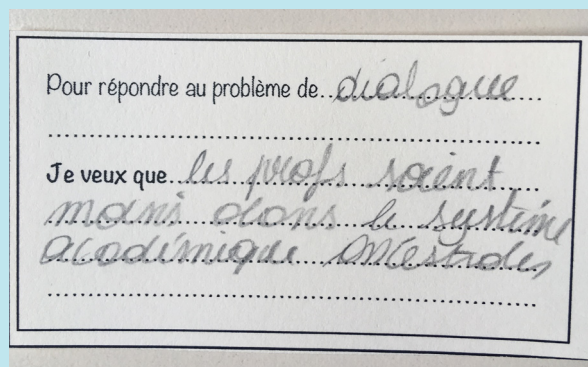 Pour répondre au problème de dialogue
Je veux que les profs soient
moins dans le système
académique ancestrales